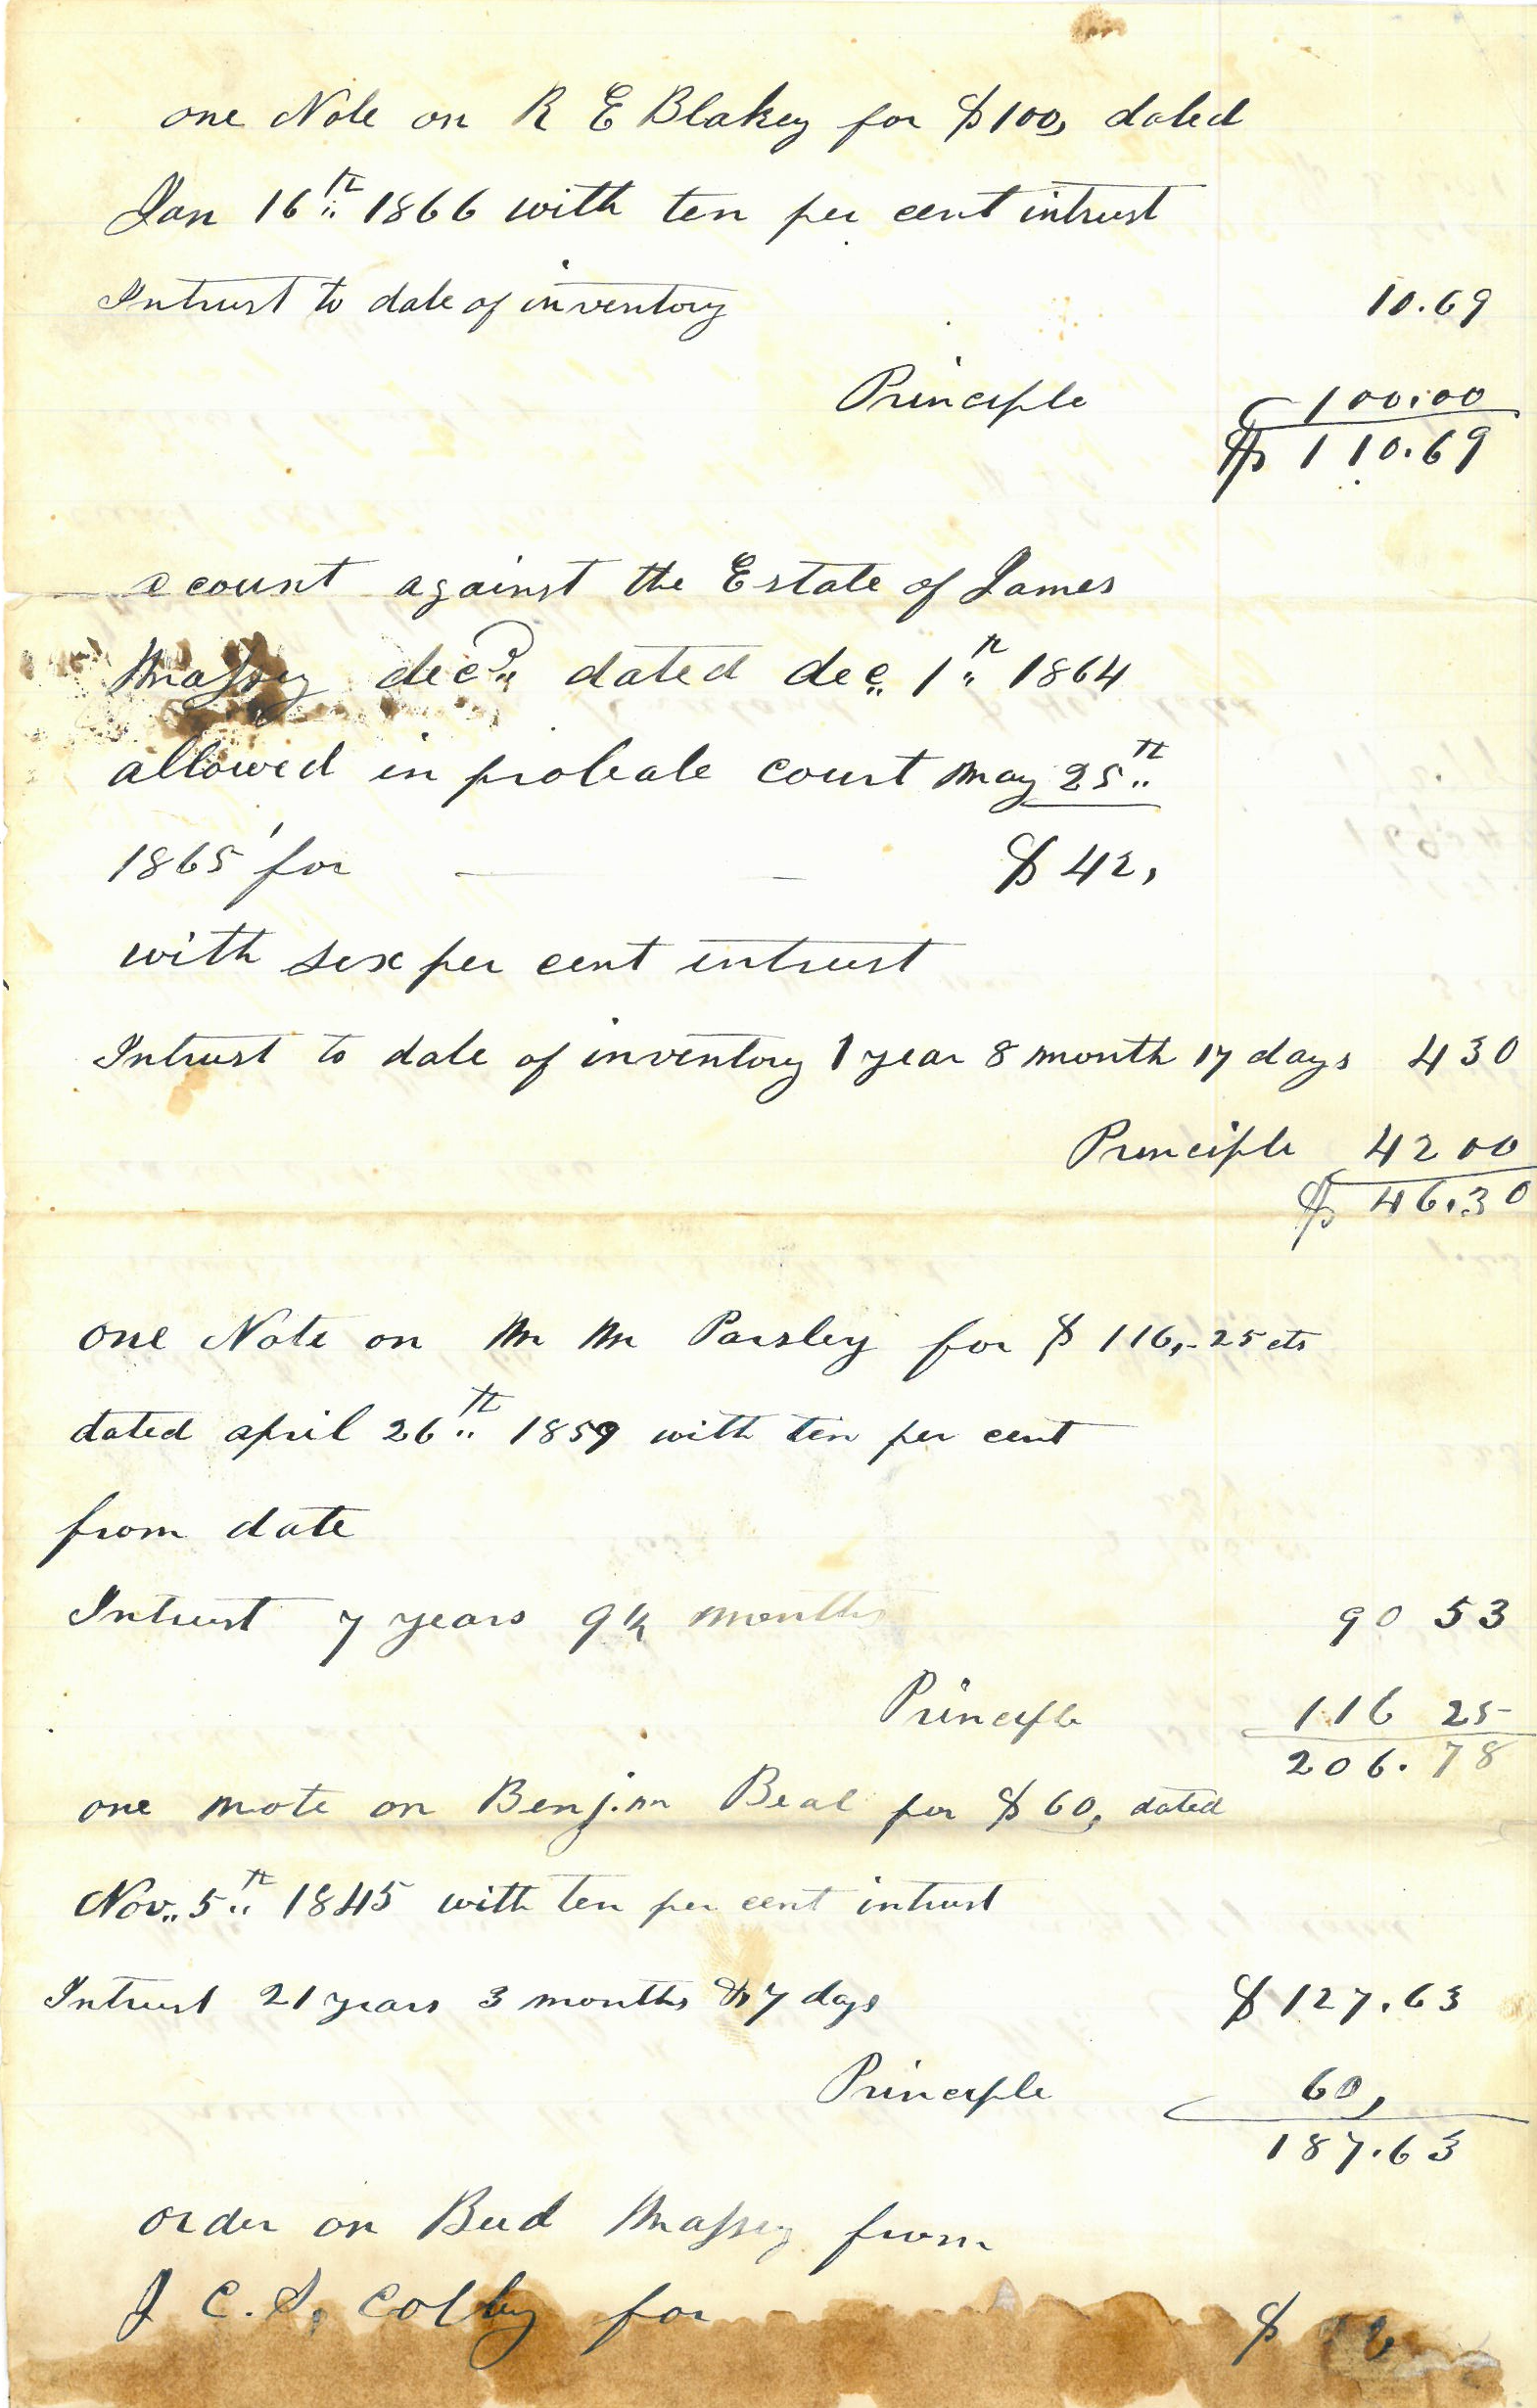 one Note on R E Blakey for $100, dated
Jan 16th 1866 with ten per cent intrust
Intrust to date of inventory 10.69
Principle 100.00
$ 110.69
account against the Estate of James
Massey decd dated dec 1th 1864
allowed in probate court may 25th
1865 for — — $ 42,
with six per cent intrust
Intrust to date of inventory 1 year 8 month 17 days 4 30
Principle 42 00
$ 46.30
one Note on M M Parsley for $ 116,-25 cts
dated april 26th 1859 with ten per cent
from date
Intrust 7 years 9½ months 90 53
Principle 116 25
206.78
one note on Benj.m Beal for $ 60, dated
Nov. 5th 1845 with ten per cent intrust
Intrust 21 years 3 months & 7 days $ 127.63
Principle 60,
187.63
order on Bud Massey from
J C. S, Colby for $